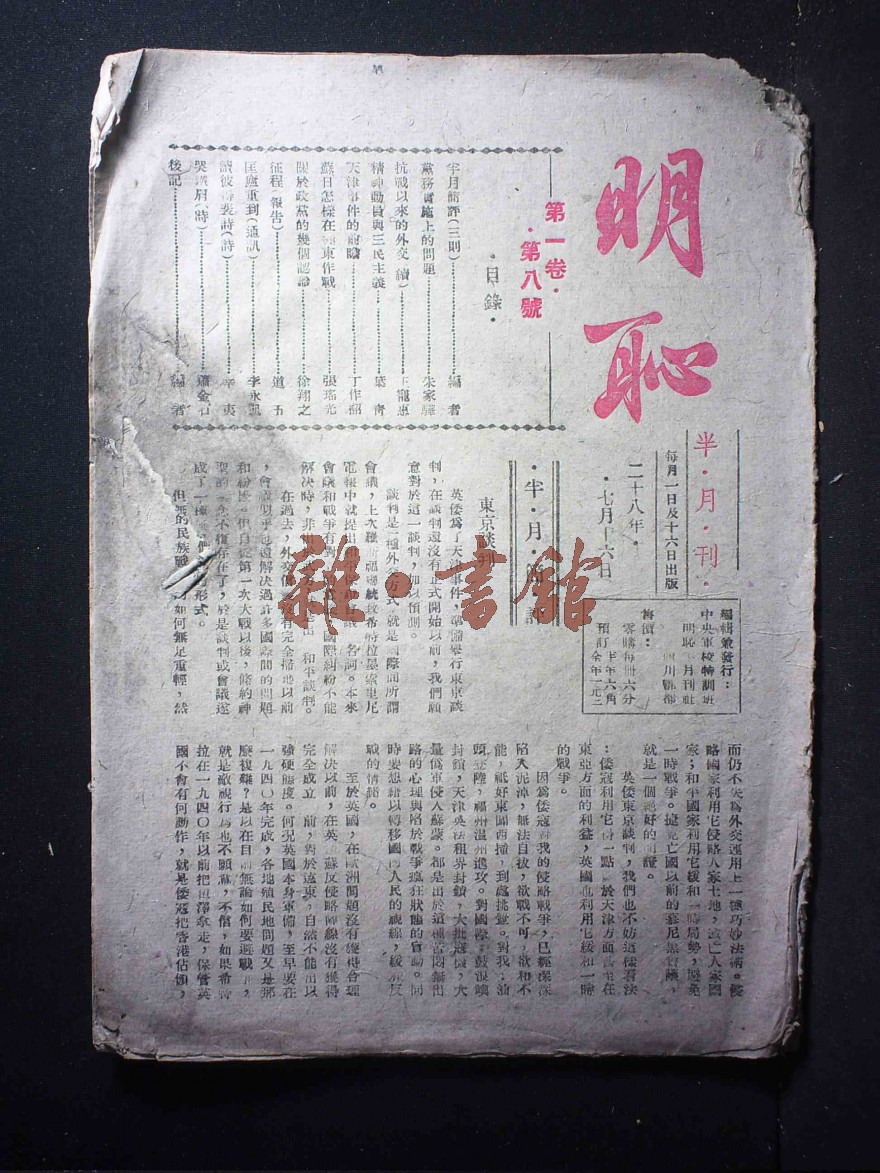 明恥
半·月·刊·
每月一日及十六日出版
二十八年·
·七月十六日
編輯兼發行:
中央軍校特訓班
明恥半月刊社
四川銅梁
售價:
零購每冊六分
半年六角
預訂全年一元二
第一卷·
·第八號
·目錄·
半月簡評(三則)編者
黨務實施上的問題朱家驊
抗戰以來的外交(續)王寵惠
精神動員與三民主義葉青
天津事件的前瞻丁作韶
蘇日怎樣在遠東作戰張瑤光
關於政黨的幾個認識徐翔之
征程(報告)道五
匡廬重到(通訊)李永
讀彼得裴詩(詩)辛夷
哭鐵眉(詩)蕭金石
後記編者
·半·月·簡·評
東京談判
英倭為了天津事件,準備舉行東京談
判,在談判還沒有正式開始以前,我們願
意對於這一談判,加以預測。
談判是一種外交方式,就是國際間所謂
會議,上次羅斯福總統致希特拉墨索里尼
電報中就提出
名詞。本來
會議和戰爭有對
國際糾紛不能
解決時,非
和平談判。
在過去,外交信
沒有完全掃地以前
,會議似乎也還解決過許多國際間的問題
和糾紛。但自從第一次大戰以後,條約神
聖的
不復存在了,於是談判或會議遂
成了一種
形式。
但無的民族戰
如何無足重輕,然
而仍不失為外交運用上一種巧妙法術。侵
略國家利用它侵略人家土地,滅亡人家國
家;和平國家利用它緩和一時局勢,避免
一時戰爭。捷克亡國以前的慕尼黑會議,
就是一個絕好的例證。
英倭東京談判,我們也不妨這樣看法
:倭寇利用它
一點
於天津方面甚至在
東亞方面的利益,英國也利用它緩和一時
的戰爭。
因為倭寇對我的侵略戰爭,已經深深
陷入泥淖,無法自拔,欲戰不可,欲和不
能,祇好東闖西撞,到處挑釁。對我:汕
頭登陸,福州溫州進攻。對國際:鼓浪嶼
封鎖,天津英法租界封鎖,大批寇機,大
量偽軍侵入蘇蒙。都是出於這種苦悶無出
路的心理與陷於戰爭瘋狂狀態的盲動。同
時要想藉以轉移國內人民的視線,緩和反
戰的情緒。
至於英國,在歐洲問題沒有獲得合理
解決以前,在英法蘇反侵略陣線沒有獲得
完全成立以前,對於遠東,自然不能出以
強硬態度。何況英國本身軍備,至早要在
一九四〇年完成,各地殖民地問題又是那
麼複雜?是以在目前無論如何要避戰
,
就是敵視行為也不願幹,不信,如果希特
拉在一九四〇年以前把但澤拿走,保管英
國不會有何動作,就是倭寇把香港佔領,
雜·書館